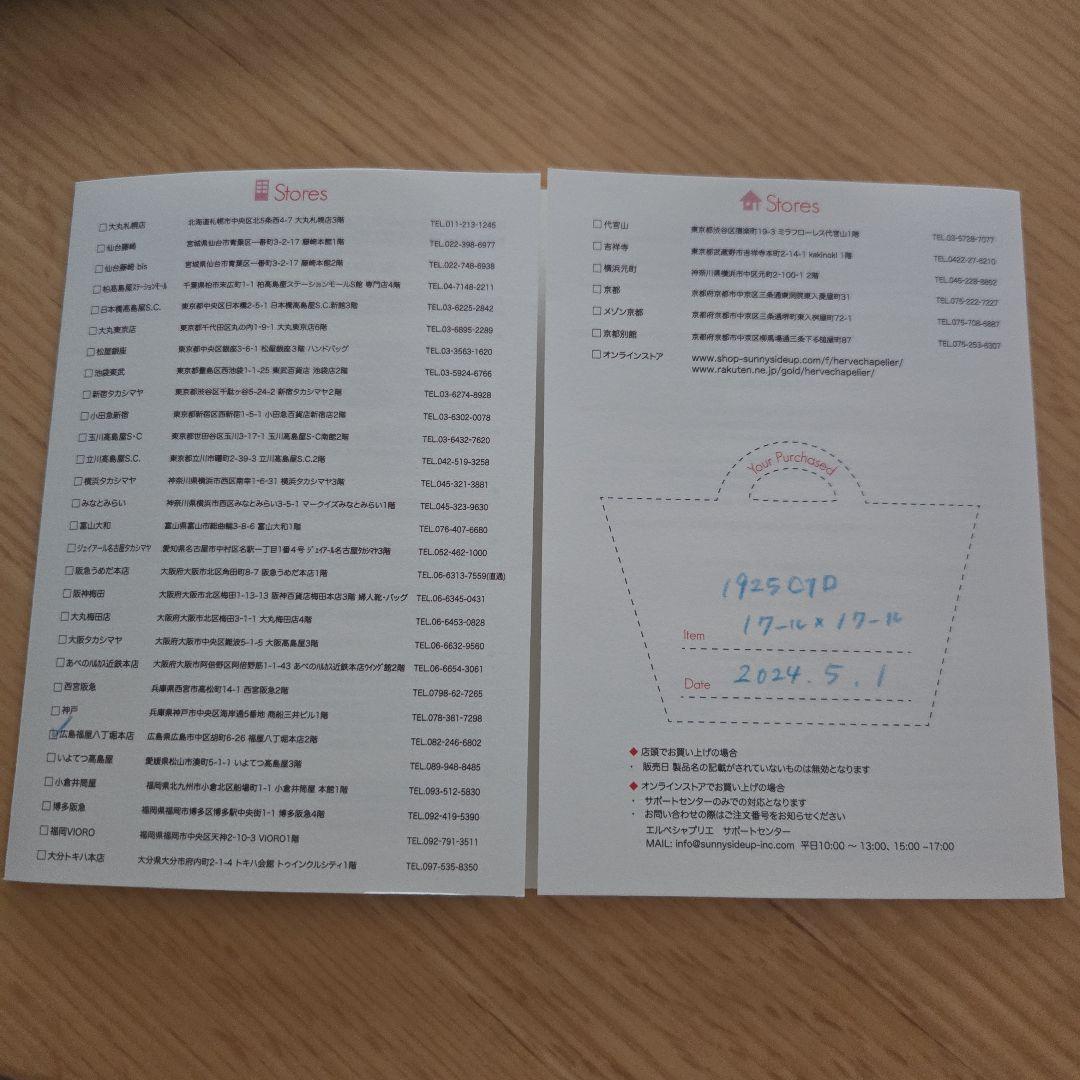 Stores
大丸札幌店 北海道札幌市中央区北5条西4-7 大丸札幌店3階 TEL.011-213-1245
仙台藤崎 宮城県仙台市青葉区一番町3-2-17 藤崎本館1階 TEL.022-398-6977
仙台藤崎 bis 宮城県仙台市青葉区一番町3-2-17 藤崎本館2階 TEL.022-748-6938
柏高島屋ステーションモール 千葉県柏市末広町1-1 柏高島屋ステーションモールS館 専門店4階 TEL.04-7148-2211
日本橋高島屋S.C. 東京都中央区日本橋2-5-1 日本橋高島屋S.C.新館3階 TEL.03-6225-2842
大丸東京店 東京都千代田区丸の内1-9-1 大丸東京店6階 TEL.03-6895-2289
松屋銀座 東京都中央区銀座3-6-1 松屋銀座3階 ハンドバッグ TEL.03-3563-1620
池袋東武 東京都豊島区西池袋1-1-25 東武百貨店 池袋店2階 TEL.03-5924-6766
新宿タカシマヤ 東京都渋谷区千駄ヶ谷5-24-2 新宿タカシマヤ2階 TEL.03-6274-8928
小田急新宿 東京都新宿区西新宿1-5-1 小田急百貨店新宿店2階 TEL.03-6302-0078
玉川高島屋S・C 東京都世田谷区玉川3-17-1 玉川高島屋S・C南館2階 TEL.03-6432-7620
立川高島屋S.C. 東京都立川市曙町2-39-3 立川高島屋S.C.2階 TEL.042-519-3258
横浜タカシマヤ 神奈川県横浜市西区南幸1-6-31 横浜タカシマヤ3階 TEL.045-321-3881
みなとみらい 神奈川県横浜市西区みなとみらい3-5-1 マークイズみなとみらい1階 TEL.045-323-9630
富山大和 富山県富山市総曲輪3-8-6 富山大和1階 TEL.076-407-6680
ジェイアール名古屋タカシマヤ 愛知県名古屋市中村区名駅一丁目1番4号 ジェイアール名古屋タカシマヤ3階 TEL.052-462-1000
阪急うめだ本店 大阪府大阪市北区角田町8-7 阪急うめだ本店1階 TEL.06-6313-7559(直通)
阪神梅田 大阪府大阪市北区梅田1-13-13 阪神百貨店梅田本店3階 婦人靴・バッグ TEL.06-6345-0431
大丸梅田店 大阪府大阪市北区梅田3-1-1 大丸梅田店4階 TEL.06-6453-0828
大阪タカシマヤ 大阪府大阪市中央区難波5-1-5 大阪高島屋3階 TEL.06-6632-9560
あべのハルカス近鉄本店 大阪府大阪市阿倍野区阿倍野筋1-1-43 あべのハルカス近鉄本店ウイング館2階 TEL.06-6654-3061
西宮阪急 兵庫県西宮市高松町14-1 西宮阪急2階 TEL.0798-62-7265
神戸 兵庫県神戸市中央区海岸通5番地 商船三井ビル1階 TEL.078-381-7298
広島福屋八丁堀本店 広島県広島市中区胡町6-26 福屋八丁堀本店2階 TEL.082-246-6802
いよてつ高島屋 愛媛県松山市湊町5-1-1 いよてつ高島屋3階 TEL.089-948-8485
小倉井筒屋 福岡県北九州市小倉北区船場町1-1 小倉井筒屋 本館1階 TEL.093-512-5830
博多阪急 福岡県福岡市博多区博多駅中央街1-1 博多阪急4階 TEL.092-419-5390
福岡VIORO 福岡県福岡市中央区天神2-10-3 VIORO1階 TEL.092-791-3511
大分トキハ本店 大分県大分市府内町2-1-4 トキハ会館 トゥインクルシティ1階 TEL.097-535-8350
Stores
代官山 東京都渋谷区猿楽町19-3 ミラフローレス代官山1階 TEL.03-5728-7077
吉祥寺 東京都武蔵野市吉祥寺本町2-14-1 kakinoki 1階 TEL.0422-27-6210
横浜元町 神奈川県横浜市中区元町2-100-1 2階 TEL.045-228-8862
京都 京都府京都市中京区三条通東洞院東入菱屋町31 TEL.075-222-7227
メゾン京都 京都府京都市中京区三条通堺町東入桝屋町72-1 TEL.075-708-6887
京都別館 京都府京都市中京区柳馬場通三条下る槌屋町87 TEL.075-253-6307
オンラインストア www.shop-sunnysideup.com/f/hervechapelier/
www.rakuten.ne.jp/gold/hervechapelier/
Your Purchased
1925CTD
Item 1ワール×1ワール
Date 2024.5.1
◆ 店頭でお買い上げの場合
・ 販売日 製品名の記載がされていないものは無効となります
◆ オンラインストアでお買い上げの場合
・ サポートセンターのみでの対応となります
・ お問い合わせの際はご注文番号をお知らせください
エルベシャプリエ サポートセンター
MAIL: info@sunnysideup-inc.com 平日10:00 ～ 13:00、15:00 ～17:00